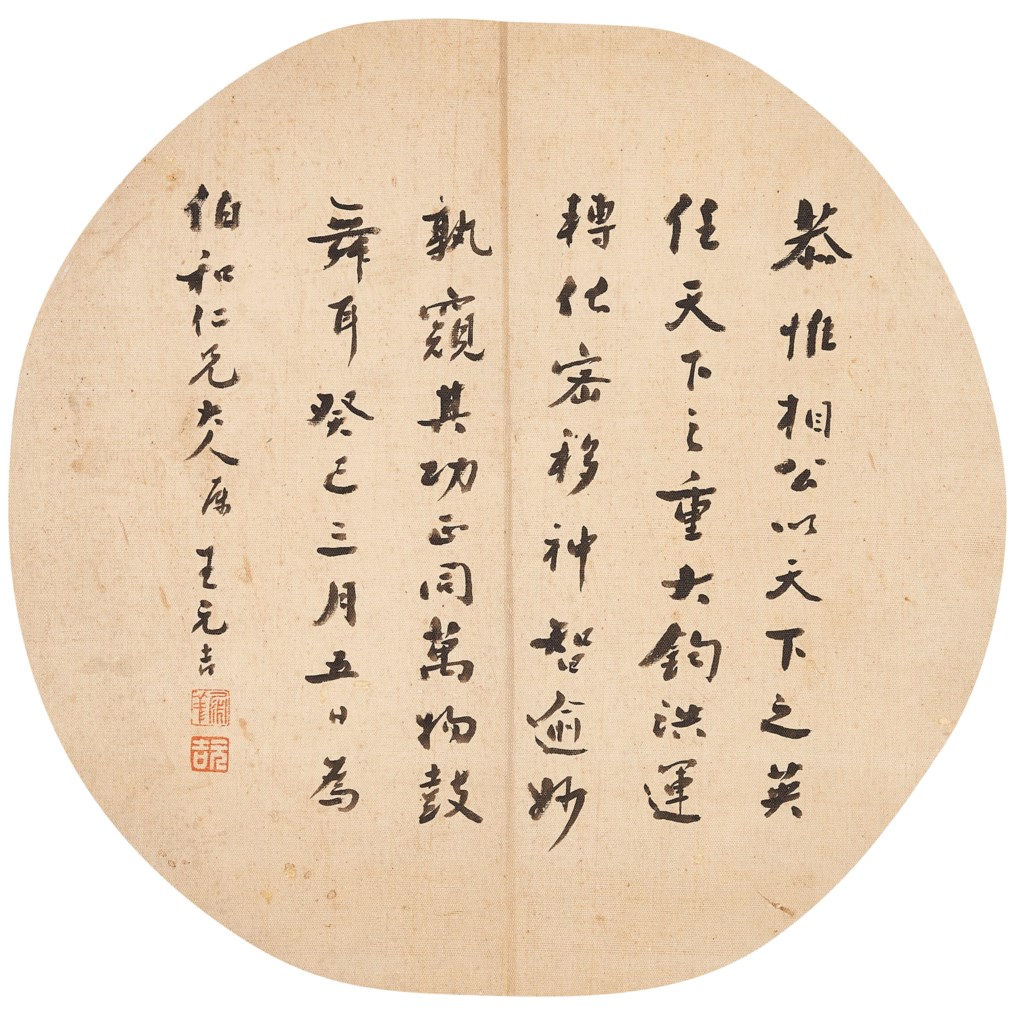 恭惟相公以天下之英
任天下之重大鈞洪運
轉化密移神智逾妙
孰窺其功正同萬物鼓
舞耳癸巳三月五日為
伯和仁兄大人属王元吉